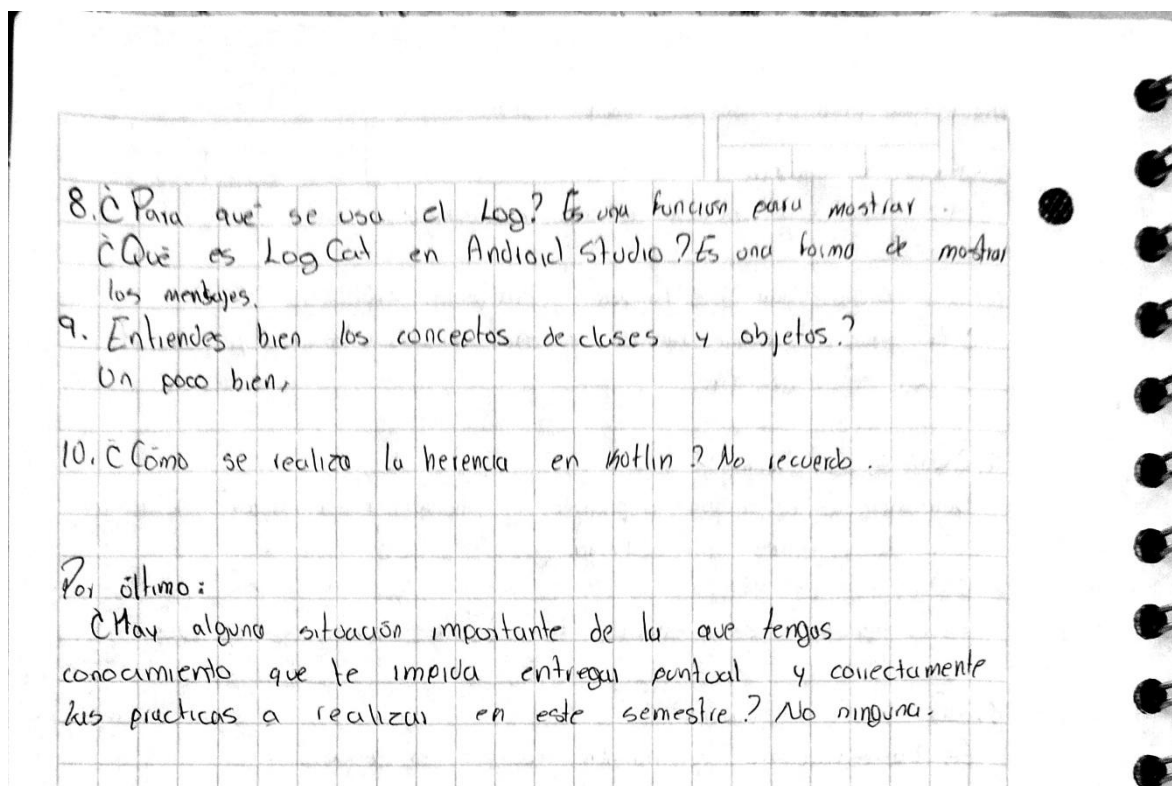 8. ¿Para que se usa el Log? Es una funcion para mostrar.
¿Qué es LogCat en Android Studio? Es una forma de mostrar
los mensajes.
9. Entiendes bien los conceptos de clases y objetos?
Un poco bien.
10. ¿Cómo se realiza la herencia en Kotlin? No recuerdo.
Por último:
¿Hay alguna situación importante de la que tengas
conocamiento que te impida entregar puntual y correctamente
tus practicas a realizar en este semestre? No ninguna.